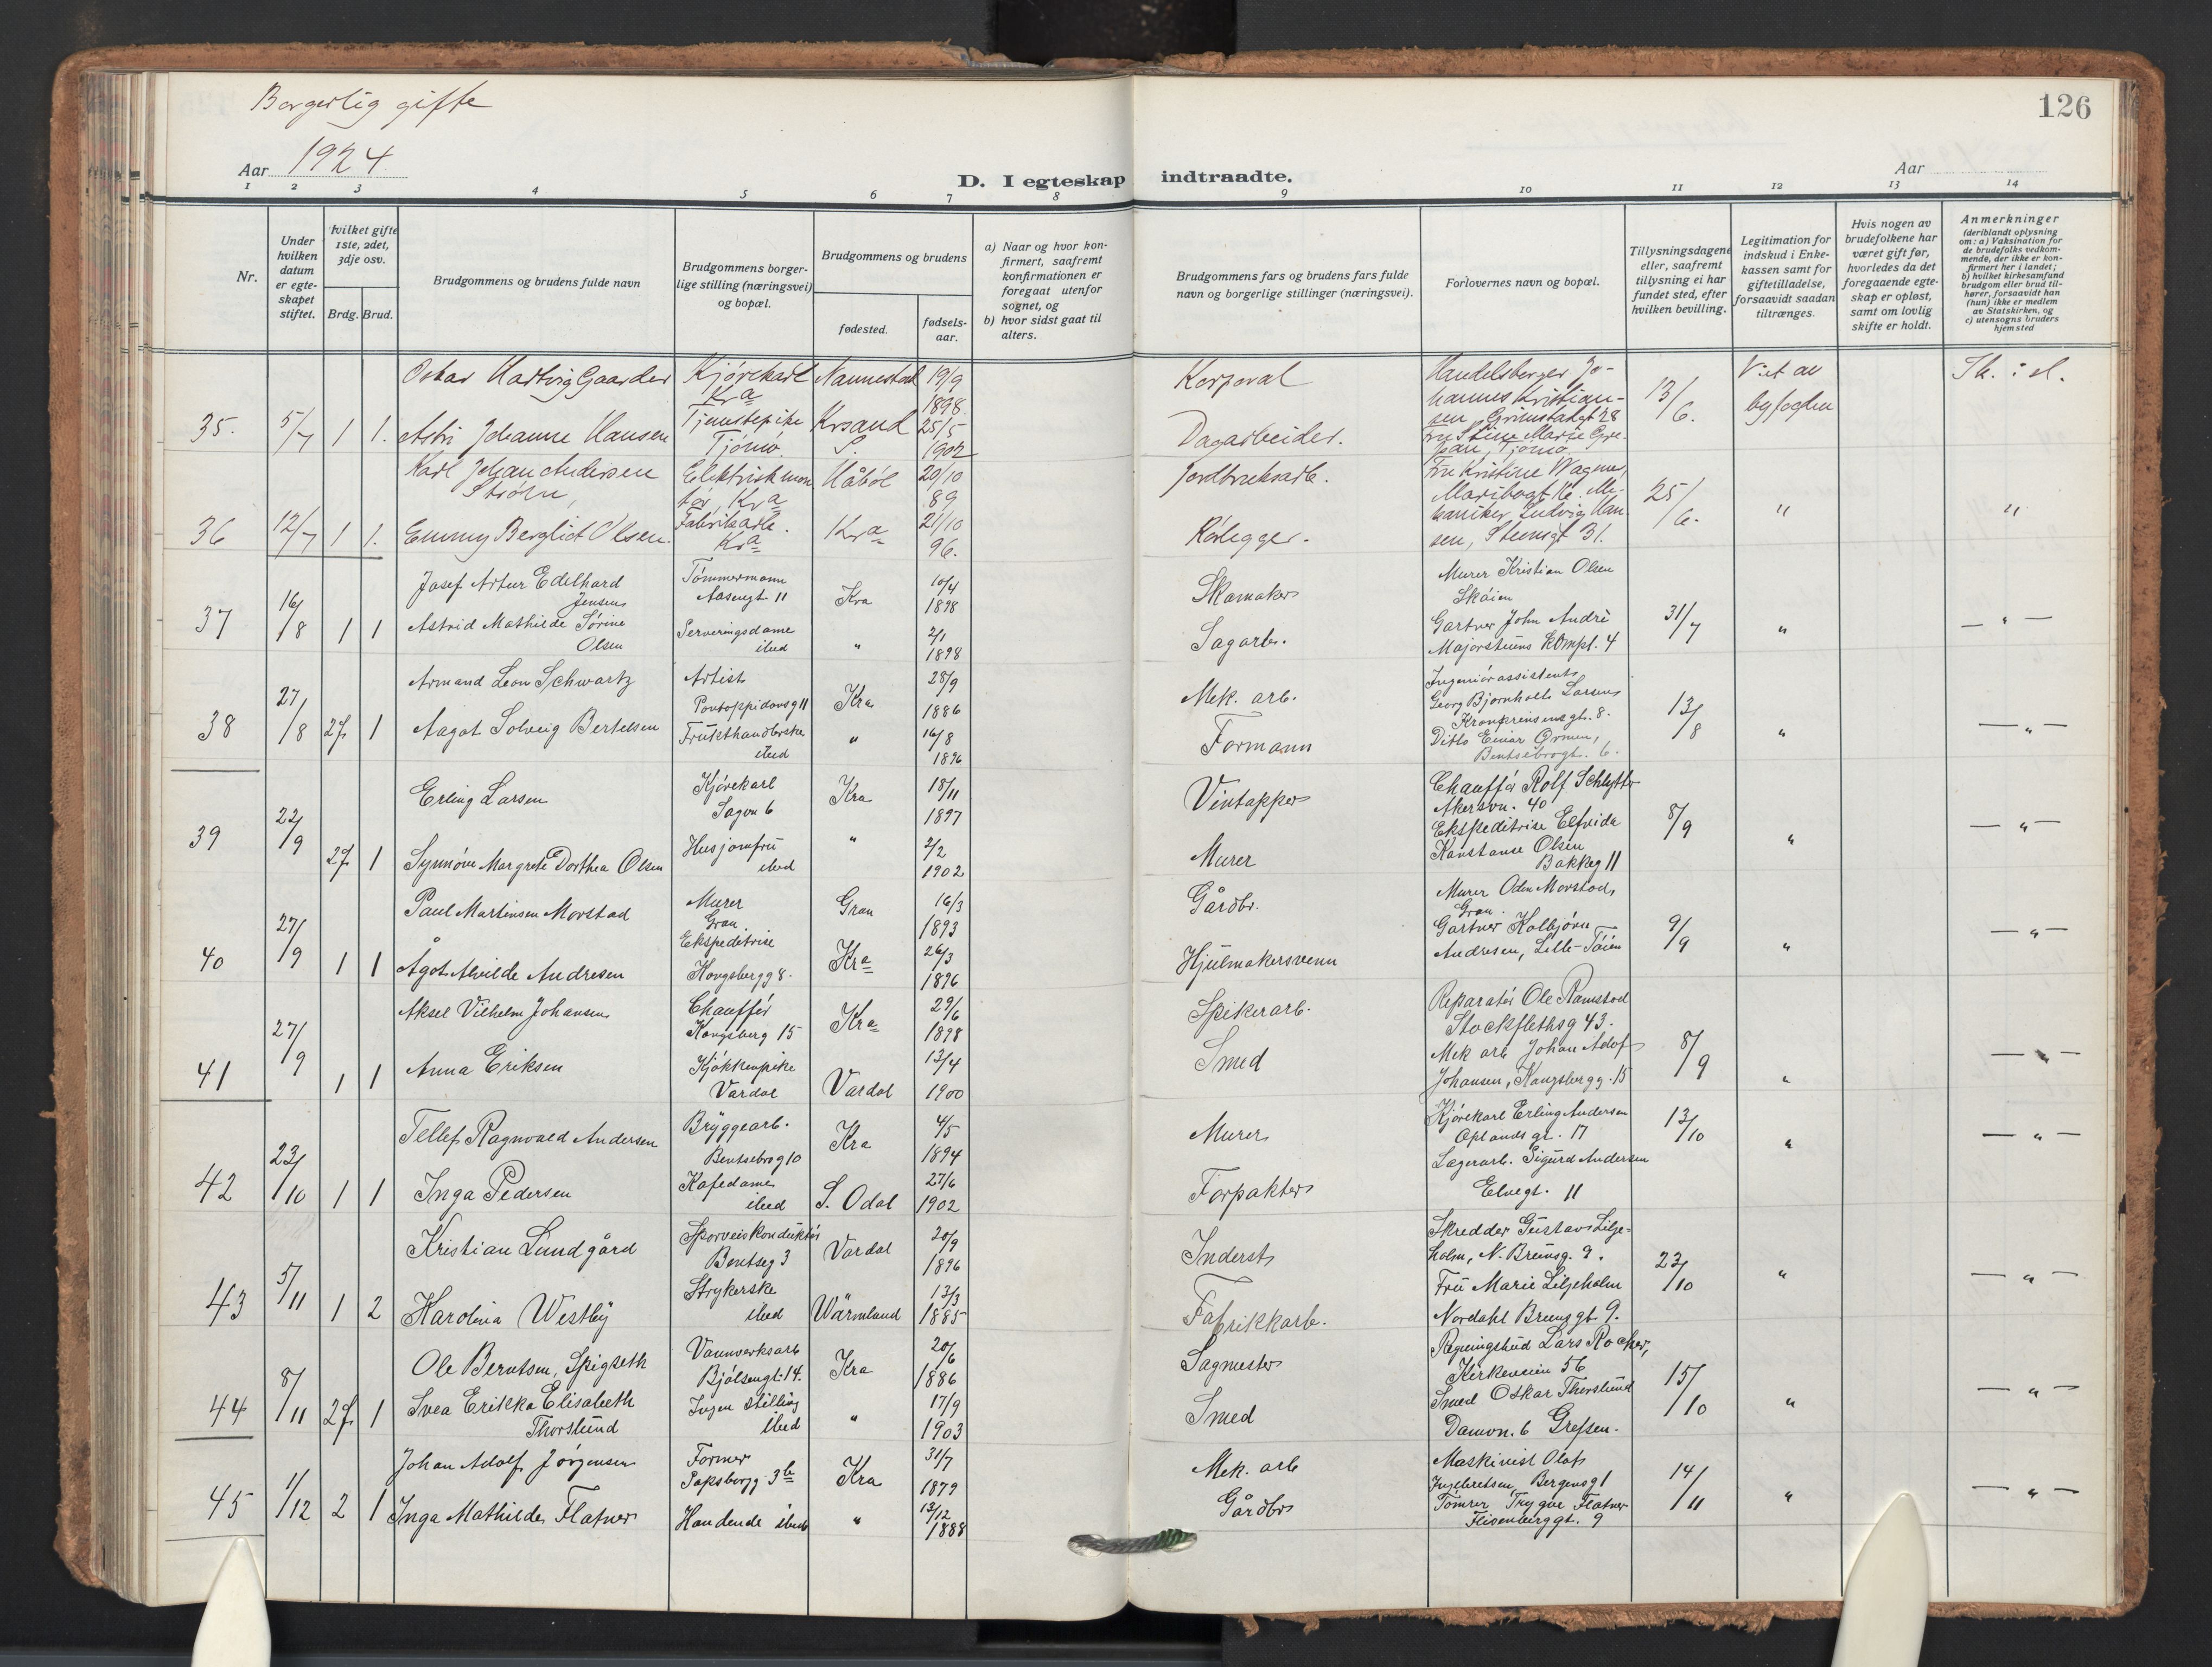 Borgerlig gifte
126
Aar 1924
Aar
D. I egteskap indtraadte.
1 2 3 4 5 6 7 8 9 10 11 12 13 14
Nr.
Under hvilken datum er egteskapet stiftet.
hvilket gifte 1ste, 2det, 3dje osv.
Brdg. Brud.
Brudgommens og brudens fulde navn
Brudgommens borgerlige stilling (næringsvei) og bopæl.
Brudgommens og brudens
fødested.
fødselsaar.
a) Naar og hvor konfirmert, saafremt konfirmationen er foregaat utenfor sognet, og
b) hvor sidst gaat til alters.
Brudgommens fars og brudens fars fulde navn og borgerlige stillinger (næringsvei).
Forlovernes navn og bopæl.
Tillysningsdagene eller, saafremt tillysning ei har fundet sted, efter hvilken bevilling.
Legitimation for indskud i Enkekassen samt for giftetilladelse, forsaavidt saadan tiltrænges.
Hvis nogen av brudefolkene har været gift før, hvorledes da det foregaaende egteskap er opløst, samt om lovlig skifte er holdt.
Anmerkninger (deriblandt oplysning om: a) Vaksination for de brudefolks vedkommende, der ikke er konfirmert her i landet; b) hvilket kirkesamfund brudgom eller brud tilhører, forsaavidt han (hun) ikke er medlem av Statskirken, og c) utensogns bruders hjemsted
35. 5/7 1 1.
Oskar Hartvig Gaarder Kjørekarl Kra Nannestad 19/9 1898. Korporal
Astri Johanne Hansen Tjenestepike Tjømø Krsand S. 25/5 1902 Dagarbeider.
Handelsborger Johannes Kristiansen, Grimstadgt 28
Fru Stine Marie Tjømø
13/6. Vit av byfogden
36 12/7 1 1.
Karl Johan Andersen Strøm, Elektriskmontør, Kra Håbøl 20/10 89 Jordbruksarb.
Emmy Bergliot Olsen. Fabrikarb. Kra Kra 21/10 96. Rørlegger.
Fru Kristine Wagner, Maribogt 16. Mekaniker Ludvig Hansen, Steensgt 31.
25/6. " "
37 16/8 1 1
Josef Artur Edelhard Jensen Tømmermann Aasengt 11 Kra 10/4 1898 Skomaker
Astrid Mathilde Sørine Olsen Serveringsdame ibid " 2/1 1898 Sagarb.
Murer Kristian Olsen Skøien
Gartner John André Majorstuens kompl. 4
31/7 " — " —
38 27/8 2f 1
Armand Leon Schwartz Artist Pontoppidansg 11 Kra 28/9 1886 Mek. arb.
Aagot Solveig Bertelsen Frukthandlerske ibid " 16/8 1896 Formann
Ingeniørassistent Georg Bjørnholt Larsen Kronprinsensgt. 8.
Ditto Einar Ørmen, Bentsebrogt. 6.
13/8 " — " —
39 22/9 2f 1
Erling Larsen Kjørekarl Sagvn 6 Kra 18/11 1897 Vintapper
Synnøve Margrete Dorthea Olsen Husjomfru ibid " 2/2 1902 Murer
Chauffør Rolf Schlytter Akersvn. 40
Ekspeditrise Elfrida Konstanse Olsen Bakkeg 11
8/9 " — " —
40 27/9 1 1
Paul Martinsen Morstad Murer Gran Gran 16/3 1893 Gårdbr.
Ågot Alvilde Andresen Ekspeditrise Kongsbergg 8. Kra 26/3 1896 Hjulmakersvenn
Murer Oden Morstad, Gran.
Gartner Kolbjørn Andresen, Lille-Tøien
9/9 " — " —
41 27/9 1 1
Aksel Vilhelm Johansen Chauffør Kongsberg 15 Kra 29/6 1898 Spikerarb.
Anna Eriksen Kjøkkenpike Vardal Vardal 13/4 1900 Smed
Reparatør Ole Ramstad Stockflethsg 43.
Mek arb Johan Adolf Johansen, Kongsbergg. 15
8/9 " — " —
42 23/10 1 1
Tellef Ragnvald Andersen Bryggearb. Bentsebrog 10 Kra 4/5 1894 Murer
Inga Pedersen Kafedame ibid S. Odal 27/6 1902 Forpakter
Kjørekarl Erling Andersen Oplandsgt. 17
Lagerarb. Sigurd Andersen Elvegt. 11
13/10 " — " —
43 5/11 1 2
Kristian Lundgård Sporveiskonduktør Bentseg 3 Vardal 20/9 1896 Inderst
Karolina Westby Strykerske ibid Wärmland 13/3 1885 Fabrikkarb.
Skredder Gustav Liljeholm, N. Brunsg. 9.
Fru Marie Liljeholm Nordahl Brunsgt 9.
22/10 " — " —
44 8/11 2f 1
Ole Berntsen Spigseth Vannverksarb Bjølsengt. 14. Kra 20/6 1886 Sagmester
Svea Erikka Elisabeth Thorslund Ingen stilling ibid " 17/9 1903 Smed
Regjeringsbud Lars Kirkeveien 56
Smed Oskar Thorslund Damvn. 6 Grefsen.
15/10 " — " —
45 1/12 2 1
Johan Adolf Jørgensen Former 3b Kra 31/7 1879 Mek. arb
Inga Mathilde Flatner Handlende ibid " 12/12 1888 Gårdbr
Maskinist Olaf Ingebretsen, Bergensg 1
Tømrer Trygve Flatner Flisenberggt. 9
14/11 " — " —